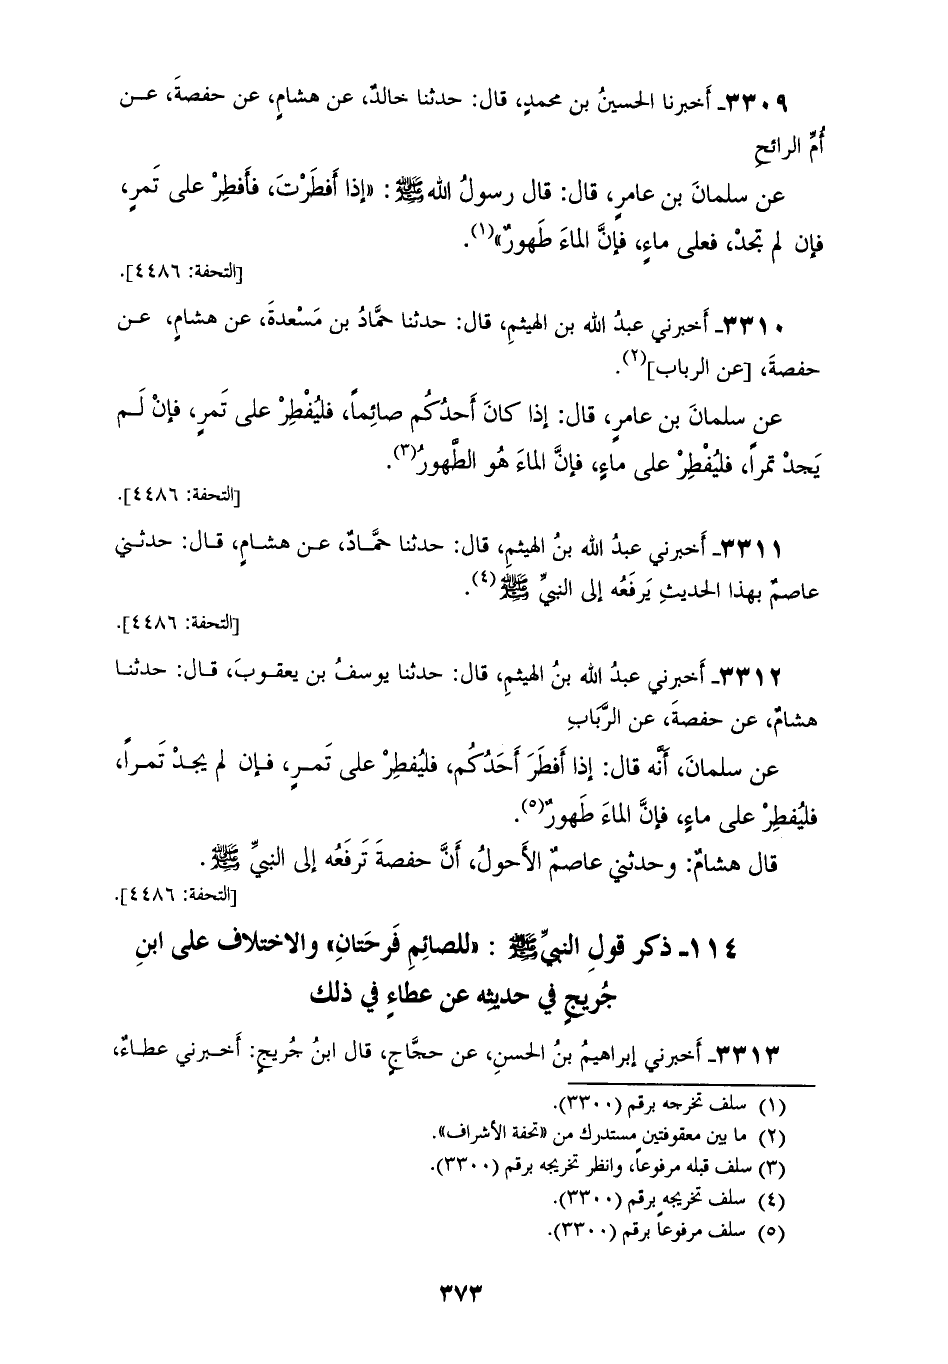 ٣٣٠٩ـ أَخبرنا الحسينُ بن محمدٍ، قال: حدثنا خالدٌ، عن هشامٍ، عن حفصةَ، عـن
أُمِّ الرائحِ
عن سلمانَ بن عامرٍ، قال: قال رسولُ الله ﷺ: «إذا أَفطَرْتَ، فأَفطِرْ على تَمرٍ،
فإن لم تجدْ، فعلى ماءٍ، فإنَّ الماءَ طَهورٌ»(١).
[التحفة: ٤٤٨٦].
٣٣١٠ـ أَخبرني عبدُ الله بن الهيثمِ، قال: حدثنا حمَّادُ بن مَسْعدةَ، عن هشامٍ، عـن
حفصةَ، [عن الرباب](٢).
عن سلمانَ بن عامرٍ، قال: إذا كانَ أَحدُكُم صائِماً، فليُفْطِرْ على تَمرٍ، فإنْ لَـم
يَجدْ تمراً، فليُفْطِرْ على ماءٍ، فإنَّ الماءَ هُو الطَّهورُ(٣).
[التحفة: ٤٤٨٦].
٣٣١١ـ أَخبرني عبدُ الله بنُ الهيثمِ، قال: حدثنا حمَّـادٌ، عـن هشـامٍ، قـال: حدثـني
عاصمٌ بهذا الحديثِ يَرفَعُه إلى النبيِّ ﷺ(٤).
[التحفة: ٤٤٨٦].
٣٣١٢ـ أَخبرني عبدُ الله بنُ الهيثمِ، قال: حدثنا يوسفُ بن يعقـوبَ، قـال: حدثنـا
هشامٌ، عن حفصةَ، عن الرَّبَابِ
عن سلمانَ، أَنَّه قال: إذا أَفطَرَ أَحَدُكُم، فليُفطِرْ على تَمـرٍ، فـإن لم يجـدْ تَمـراً،
فليُفطِرْ على ماءٍ، فإنَّ الماءَ طَهورٌ(٥).
قال هشامٌ: وحدثني عاصمٌ الأَحولُ، أَنَّ حفصةَ تَرفَعُه إلى النبيِّ ﷺ.
[التحفة: ٤٤٨٦].
١١٤ـ ذكر قولِ النبيِّ ﷺ: «للصائِمِ فَرحَتانِ» والاختلاف على ابنِ
جُريجٍ في حديثِه عن عطاءٍ في ذلك
٣٣١٣ـ أَخبرني إبراهيمُ بنُ الحسنِ، عن حجَّاجٍ، قال ابنُ جُريجٍ: أَخـبرني عطـاءٌ،
(١) سلف تخرجه برقم (٣٣٠٠).
(٢) ما بين معقوفتين مستدرك من «تحفة الأشراف».
(٣) سلف قبله مرفوعاً، وانظر تخريجه برقم (٣٣٠٠).
(٤) سلف تخريجه برقم (٣٣٠٠).
(٥) سلف مرفوعاً برقم (٣٣٠٠).
٣٧٣